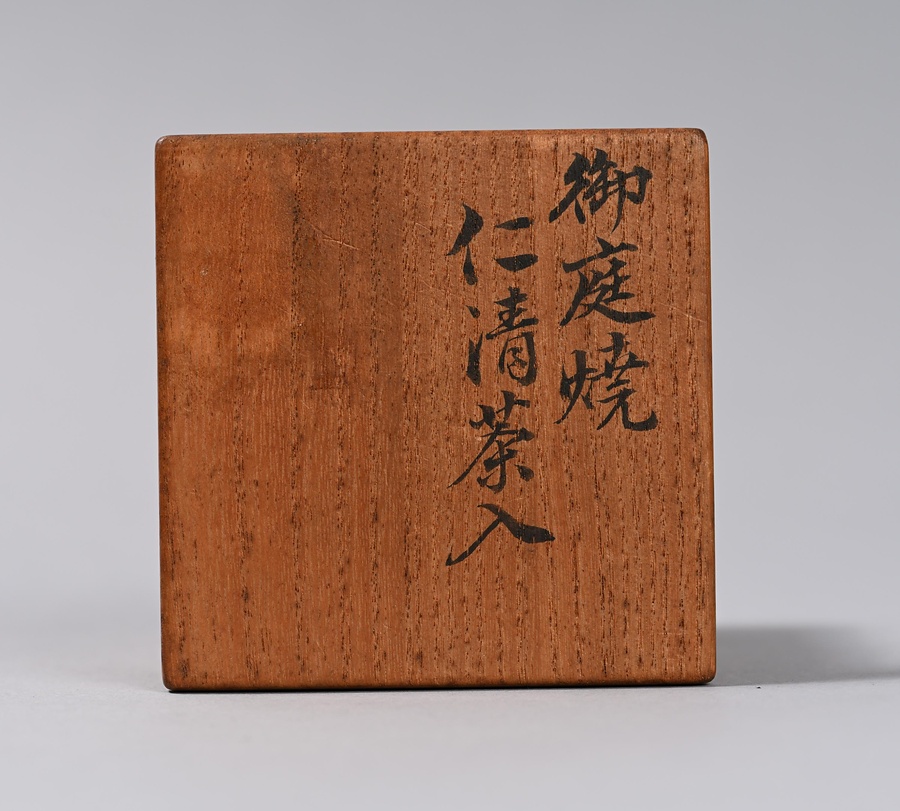 御庭燒
仁清茶入